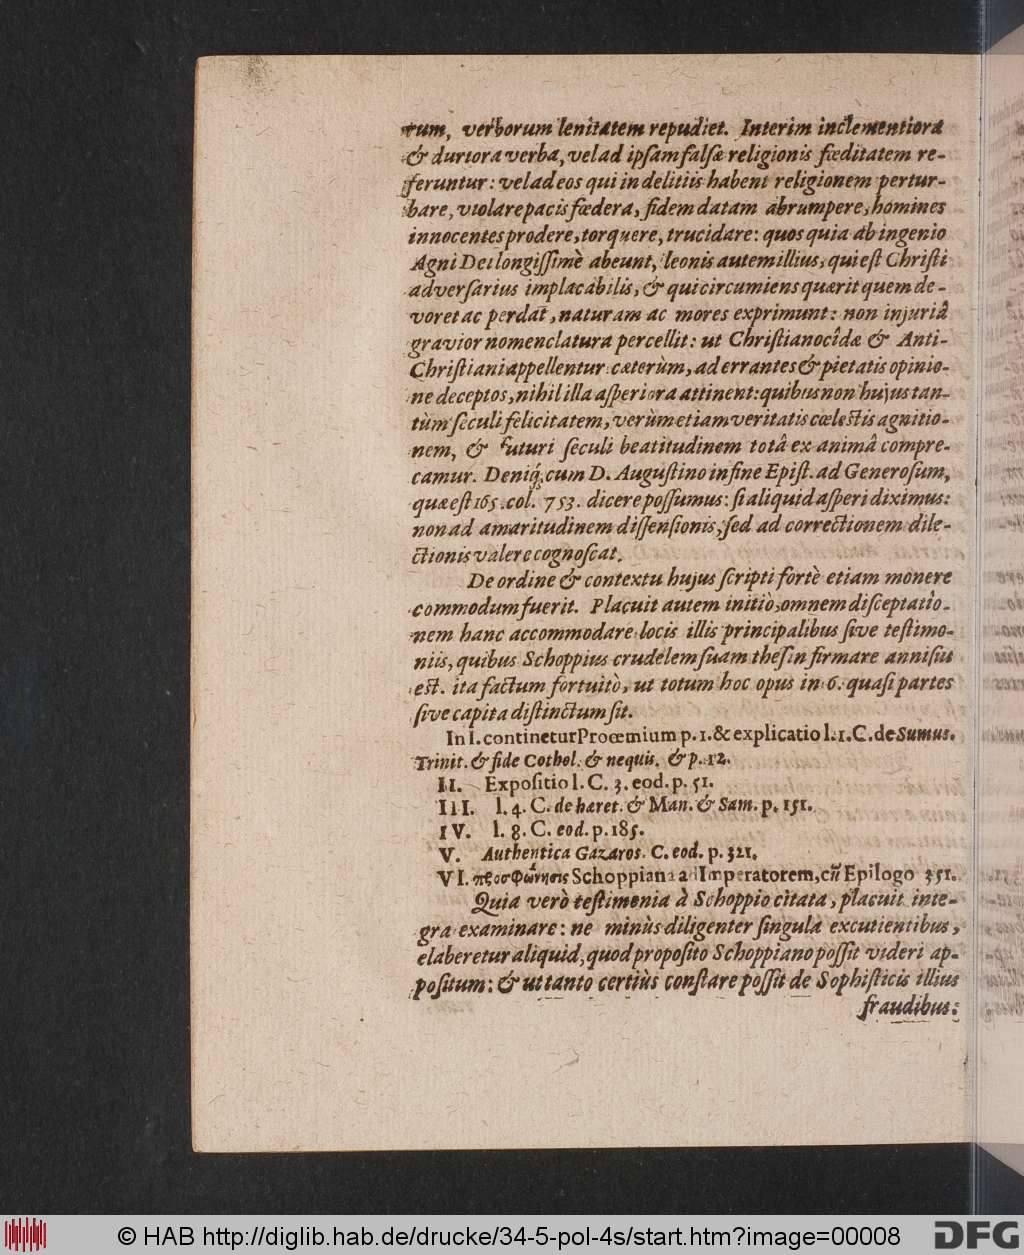 rum, verborum lenitatem repudiet. Interim inclementiora
& duriora verba, vel ad ipsam falsæ religionis fœditatem re-
feruntur: vel ad eos qui in delitiis habent religionem pertur-
bare, violare pacis fœdera, fidem datam abrumpere, homines
innocentes prodere, torquere, trucidare: quos quia ab ingenio
Agni Dei longissimè abeunt, leonis autem illius, qui est Christi
adversarius implacabilis, & qui circumiens quærit quem de-
voret ac perdat, naturam ac mores exprimunt: non injuriâ
gravior nomenclatura percellit: ut Christianocîdæ & Anti-
Christiani appellentur cæterùm, ad errantes & pietatis opinio-
ne deceptos, nihil illa asperiora attinent: quibus non hujus tan-
tùm seculi felicitatem, verùm etiam veritatis cœlestis agnitio-
nem, & futuri seculi beatitudinem totâ ex animâ compre-
camur. Deniq́; cum D. Augustino in fine Epist. ad Generosum,
quæ est 165. col. 753. dicere possumus: si aliquid asperi diximus:
non ad amaritudinem dissensionis, sed ad correctionem dile-
ctionis valere cognoscat.
De ordine & contextu hujus scripti fortè etiam monere
commodum fuerit. Placuit autem initiò, omnem disceptatio-
nem hanc accommodare locis illis principalibus sive testimo-
niis, quibus Schoppius crudelem suam thesin firmare annisus
est. ita factum fortuitò, ut totum hoc opus in 6. quasi partes
sive capita distinctum sit.
In I. continetur Proœmium p. 1. & explicatio l. 1. C. de Sumus.
Trinit. & fide Cathol. & nequis. & p. 12.
II. Expositio l. C. 3. eod. p. 51.
III. l. 4. C. de hæret. & Man. & Sam. p. 151.
IV. l. 8. C. eod. p. 185.
V. Authentica Gazaros. C. eod. p. 321.
VI. προσφώνησις Schoppiana ad Imperatorem, cũ Epilogo 351.
Quia verò testimonia à Schoppio citata, placuit inte-
gra examinare: ne minùs diligenter singula excutientibus,
elaberetur aliquid, quod proposito Schoppiano possit videri ap-
positum: & ut tanto certiùs constare possit de Sophisticis illius
fraudibus:
© HAB http://diglib.hab.de/drucke/34-5-pol-4s/start.htm?image=00008
DFG